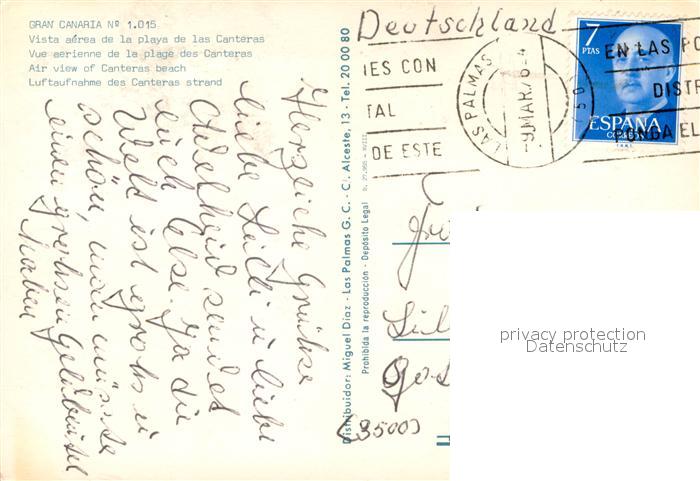 GRAN CANARIA Nº 1.015
Vista aérea de la playa de las Canteras
Vue aerienne de la plage des Canteras
Air view of Canteras beach
Luftaufnahme des Canteras strand
Herzliche Grüsse
liebe u liebe
Adelheid sendet
euch Else. Ja die
Welt ist gross u
schön, man müsste
einen grossen Geldbeutel
haben
Distribuidor: Miguel Diaz - Las Palmas G. C. - C. Alceste, 13 - Tel. 20 00 80
Prohibida la reproducción - Depósito Legal
Deutschland
IES CON
TAL
DE ESTE
LAS PALMAS
MAR.76
7
PTAS
ESPAÑA
CORREOS
EN LAS PO
DISTR
PONGA EL
(3500)
privacy protection
Datenschutz